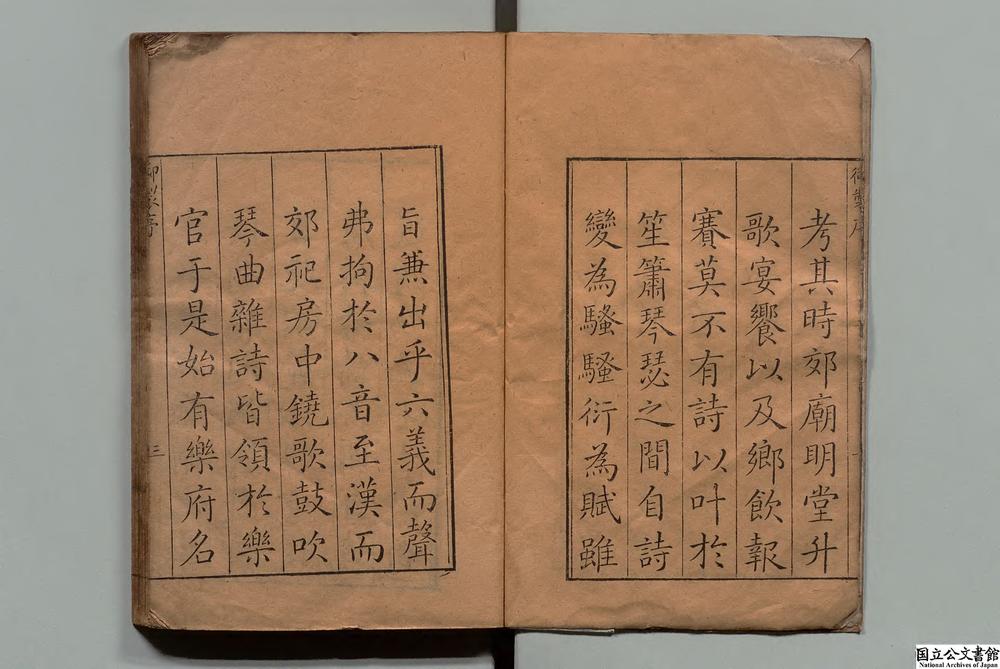 御製序
考其時郊廟明堂升
歌宴饗以及鄉飲報
賽莫不有詩以叶於
笙簫琴瑟之間自詩
變為騷騷衍為賦雖
旨兼出乎六義而聲
弗拘於八音至漢而
郊祀房中鐃歌鼓吹
琴曲雜詩皆領於樂
官于是始有樂府名
御製序
三
国立公文書館
National Archives of Japan